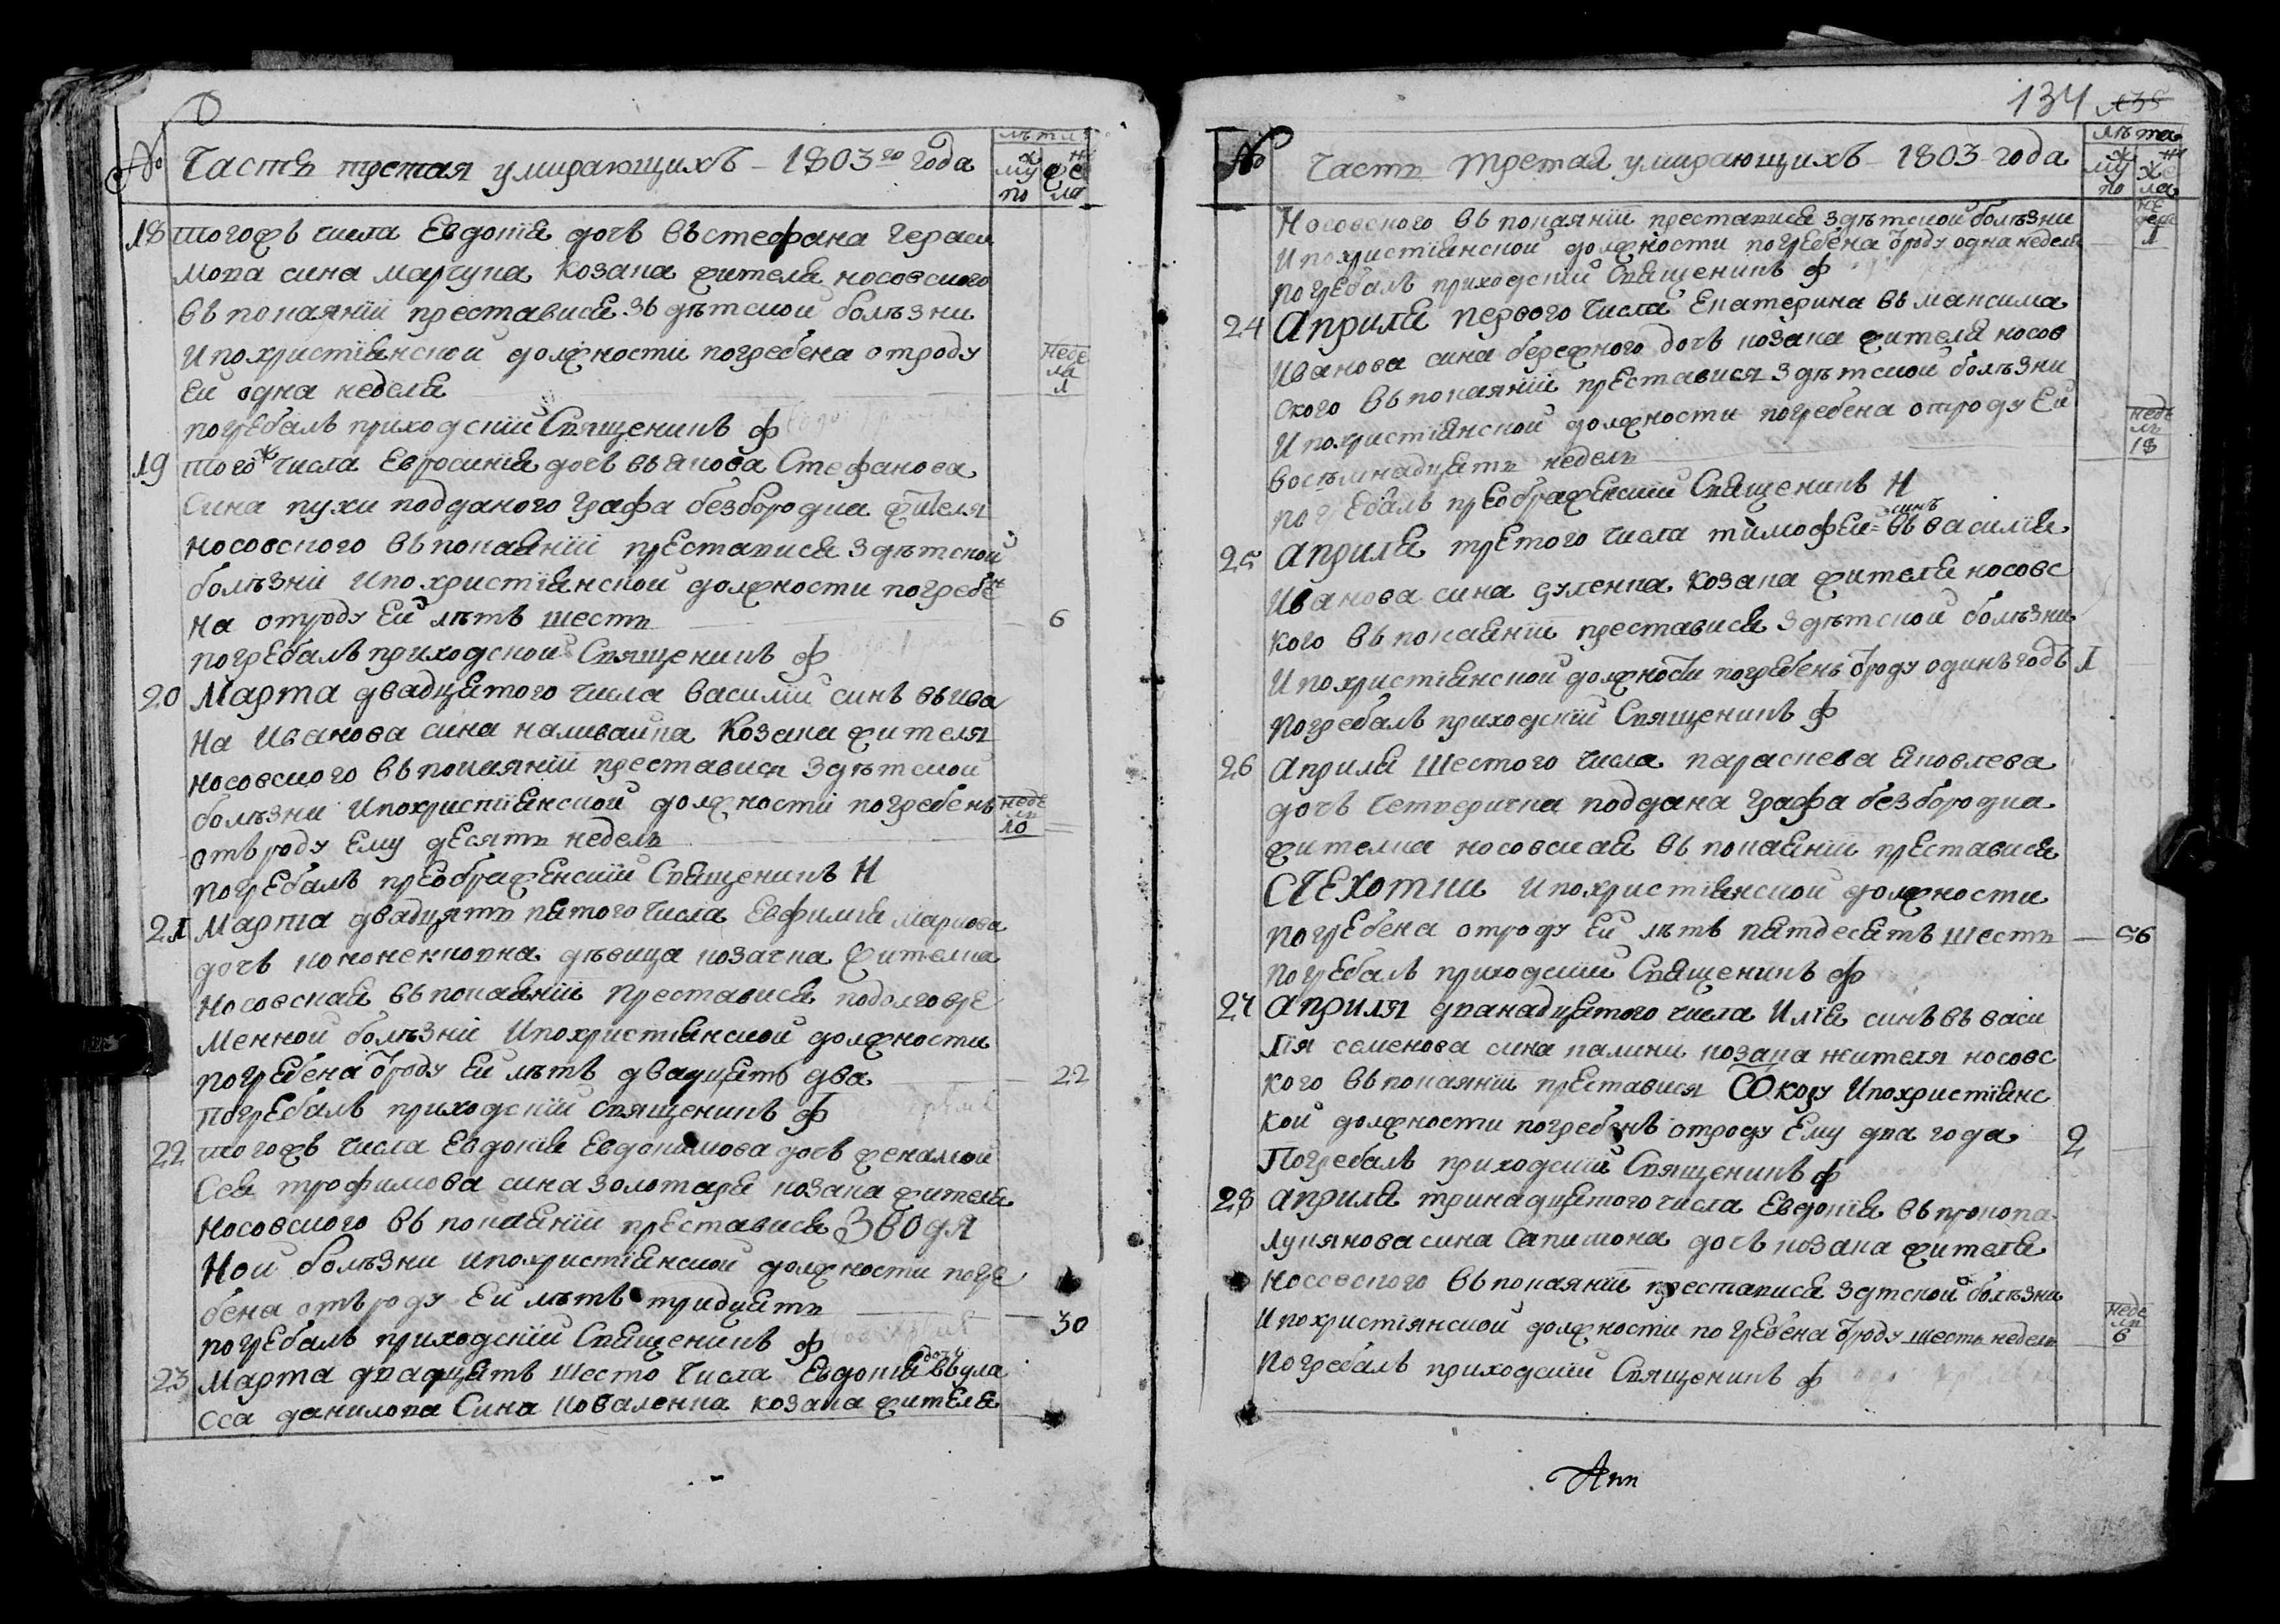 № Часть третая умирающихъ - 1803го года
лѣта
мужска полу
женска
18 тогожъ числа Евдокія дочь въ стефана Гераси
мова сина марчука козака жителя носовского
въ покаяніи преставися зъ дѣтской болѣзни
и по христіянской должности погребена отроду
Ей одна неделя
неделя 1
погребалъ приходскій Священикъ ф
19 тогож числа Евросинія дочь въ якова Стефанова
Сина пухи подданого графа безбородка жителя
носовского въ покаяніи преставися з дѣтской
болѣзни и по христіянской должности погребе
на отроду Ей лѣтъ шесть 6
погребалъ приходской Священикъ ф
20 Марта двадцятого числа василій синъ въ ива
на Иванова сина наливайка козака жителя
носовского въ покаяніи преставися з дѣтской
болѣзни и по христіянской должности погребенъ
отъ роду Ему десять недель
недель 10
погребалъ преображенскій Священикъ Н
21 Марта двадцять пятого числа Евфимія маркова
дочь кононековна дѣвица козачка жителка
носовская въ покаяніи Преставися по долговре
менной болѣзни и по христіянской должности
погребена ѿроду Ей лѣтъ двадцять два 22
погребалъ приходскій священикъ ф
22 тогожъ числа Евдокія Евдокимова дочь жена мой
Сея трофимова сина золотаря козака жителя
носовского въ покаяніи преставися З водя
Ной болѣзни и по христіянской должности погре
бена отъ роду Ей лѣтъ тридцять 30
погребалъ приходскій Священикъ ф
23 Марта двадцять шесто числа Евдокія дочь въ ула
сса данилова Сина коваленка козака жителя
134 135
№ Часть третая умирающихъ - 1803 года
лѣта
мужска полу
женска
носовского въ покаяніи преставися з дѣтской болѣзни
и по христіянской должности погребена ѿроду одна неделя
неделя 1
погребалъ приходскій Священикъ ф
24 Априля первого числа Екатерина въ максима
Иванова сина бережного дочь козака жителя носов
ского въ покаяніи преставися з дѣтской болѣзни
и по христіянской должности погребена отроду Ей
восѣмнадцять недель
недель 18
погребалъ преображенскій Священикъ Н
25 Априля третого числа тимофей синъ въ василія
Иванова сина дуленка козака жителя носовс
кого въ покаяніи преставися з дѣтской болѣзни
и по христіянской должности погребенъ ѿроду одинъ годъ 1
погребалъ приходскій Священикъ ф
26 Априля шестого числа параскева яковлева
дочь Четверичка поддана графа безбородка
жителка носовская въ покаяніи преставися
С ЧЕхотки и по христіянской должности
погребена отроду Ей лѣтъ пятдесятъ шесть 56
погребалъ приходскій Священикъ ф
27 Априля дванадцятого числа Илія синъ въ васи
лія семенова сина палики козака жителя носовс
кого въ покаяніи преставися СО кору и по христіянс
кой должности погребенъ отроду Ему два года 2
Погребалъ приходскій Священикъ ф
28 Априля тринадцятого числа Евдокія въ прокопа
лукянова сина Сапимона дочь козака жителя
носовского въ покаяніи преставися з дтской болѣзни
и по христіянской должности погребена ѿроду шесть недель
недель 6
погребалъ приходскій Священикъ ф